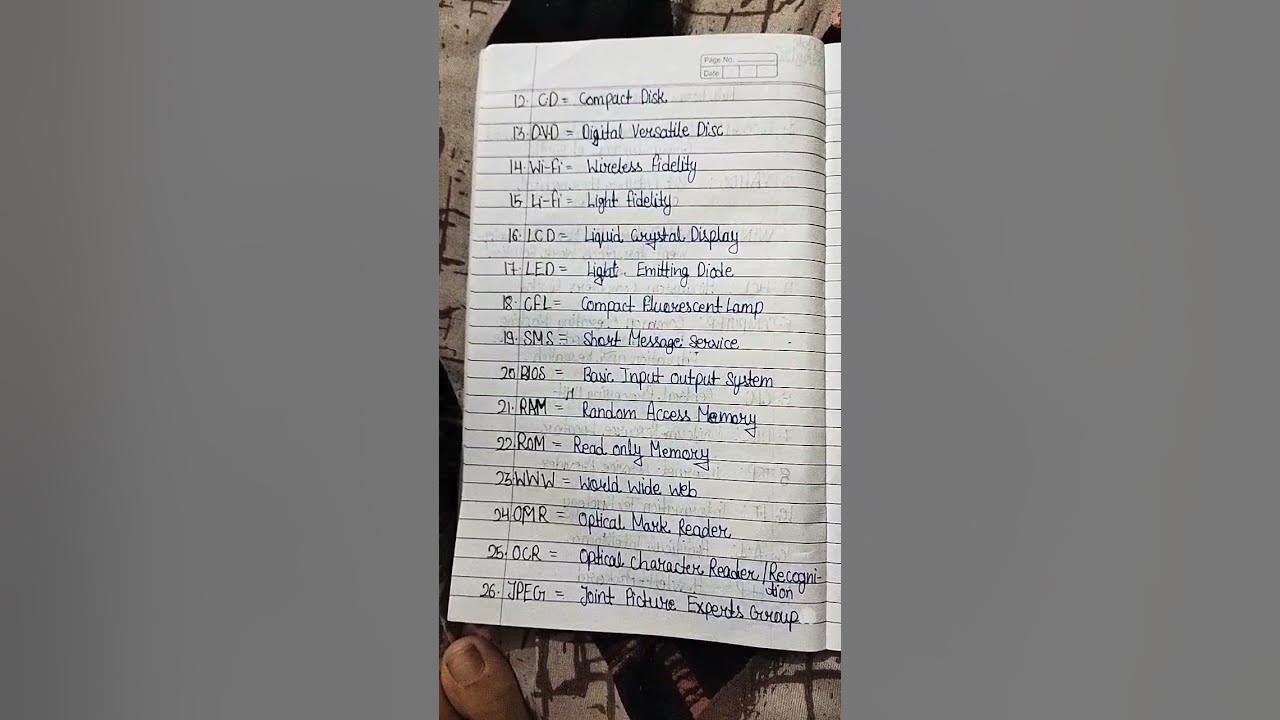 Page No.
Date
12. CD = Compact Disk
13. DVD = Digital Versatile Disc
14. Wi-Fi = Wireless fidelity
15. Li-fi = Light fidelity
16. LCD = Liquid Crystal Display
17. LED = Light Emitting Diode
18. CFL = Compact Fluorescent Lamp
19. SMS = Short Message Service
20. BIOS = Basic Input output System
21. RAM = Random Access Memory
22. ROM = Read only Memory
23. WWW = World Wide Web
24. OMR = Optical Mark Reader
25. OCR = Optical character Reader/Recogni-
tion
26. JPEG = Joint Picture Experts Group